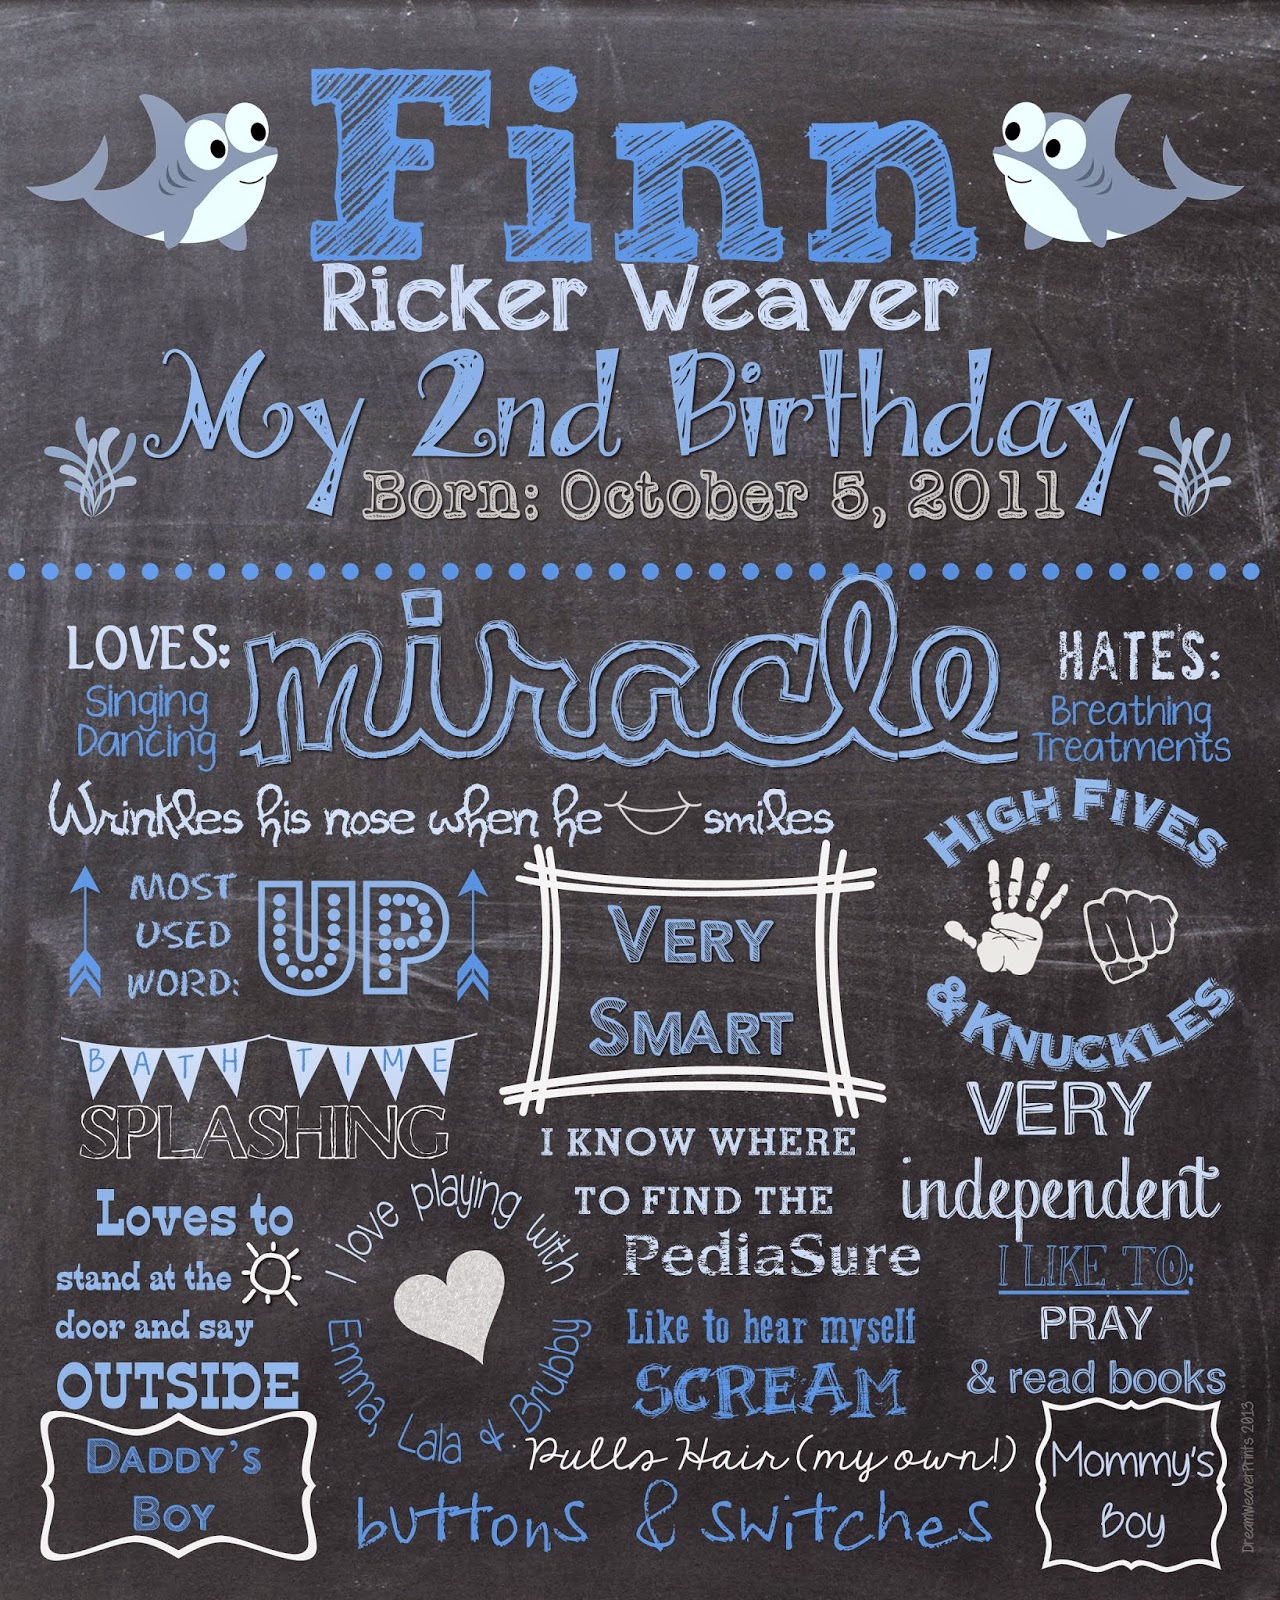 Finn
Ricker Weaver
My 2nd Birthday
Born: October 5, 2011
LOVES:
Singing
Dancing
miracle
HATES:
Breathing
Treatments
Wrinkles his nose when he smiles
HIGH FIVES
& KNUCKLES
MOST
USED
WORD:
UP
VERY
SMART
BATH TIME
SPLASHING
VERY
independent
I KNOW WHERE
TO FIND THE
PediaSure
Loves to
stand at the
door and say
OUTSIDE
I love playing with
Emma, Lala & Brubby
I LIKE TO:
PRAY
& read books
Like to hear myself
SCREAM
Pulls Hair (my own!)
buttons & switches
DADDY'S
BOY
Mommy's
Boy
DreamWeaverPrints 2013